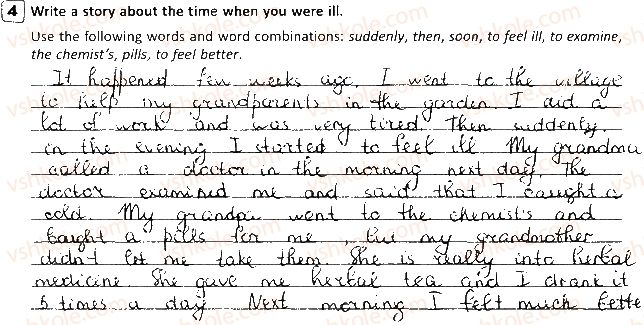 4 Write a story about the time when you were ill.
Use the following words and word combinations: suddenly, then, soon, to feel ill, to examine,
the chemist's, pills, to feel better.
It happened few weeks ago. I went to the village
to help my grandparents in the garden. I did a
lot of work and was very tired. Then suddenly,
in the evening I started to feel ill. My grandma
called a doctor in the morning next day. The
doctor examined me and said that I caught a
cold. My grandpa went to the chemist's and
bought a pills for me, but my grandmother
didn't let me take them. She is really into herbal
medicine. She gave me herbal tea and I drank it
5 times a day. Next morning I felt much bette